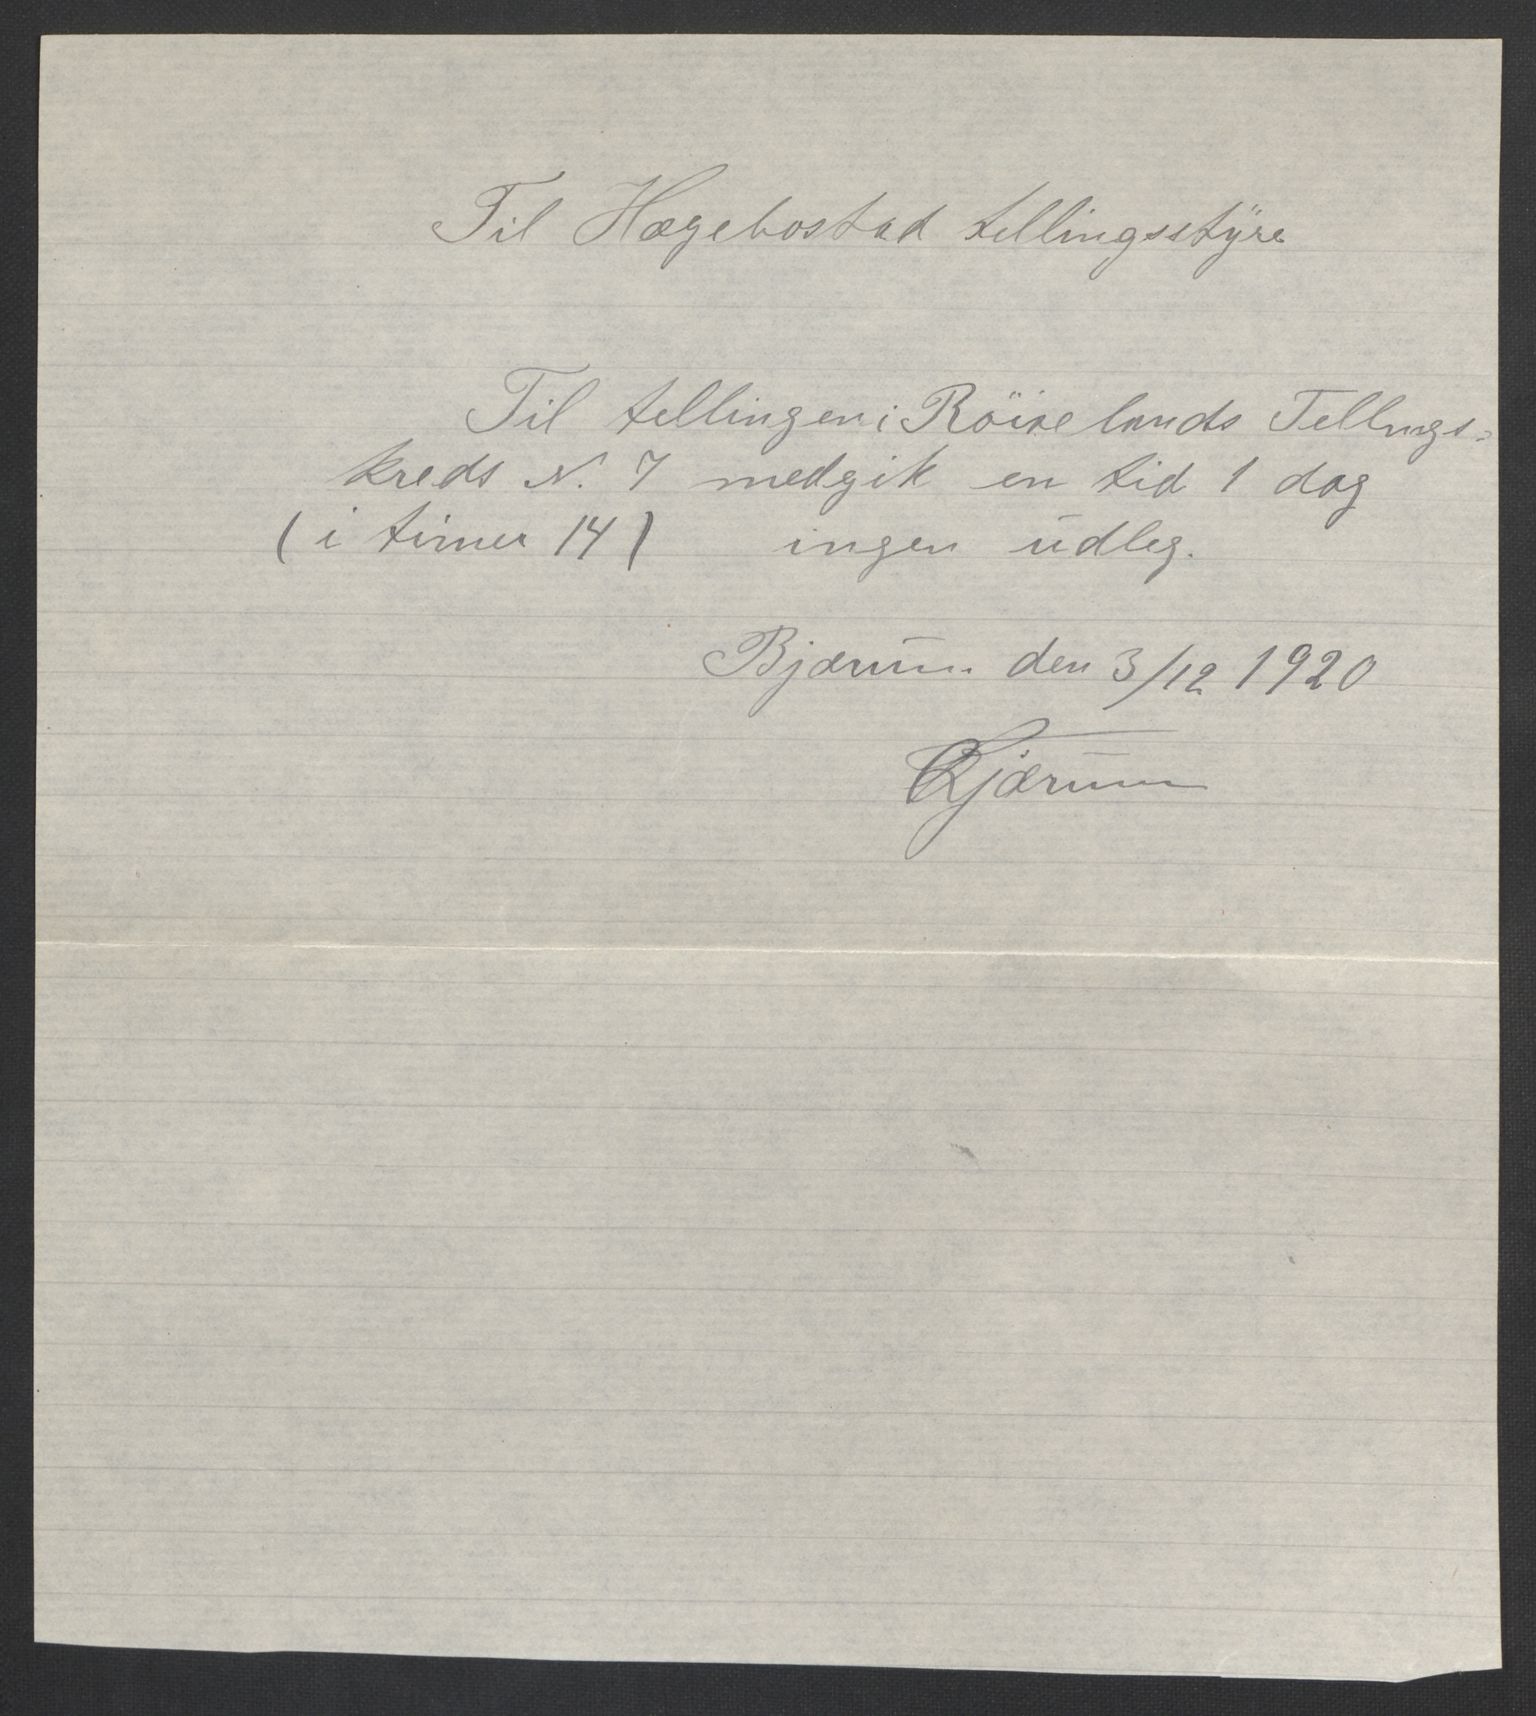 Til Hægebostad tellingsstyre
Til tellingen i Röiselands Tellings-
kreds N. 7 medgik en tid 1 dag
(i timer 14) ingen udleg.
Bjærum den 3/12 1920
Bjærum